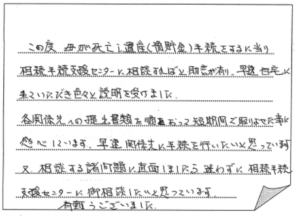 この度 母が死亡し遺産(預貯金)手続をするに当り
相続手続支援センターに相談すればと助言が有り、早速自宅に
来ていただき色々と説明を受けました。
各関係先への提出書類を 短期間で取りよせた事に
感心しています。早速関係先に手続を行いたいと思っています
又 相談する諸問題に直面しましたら 迷わずに相続手続
支援センターに御相談したいと思っています。
有難うございました。